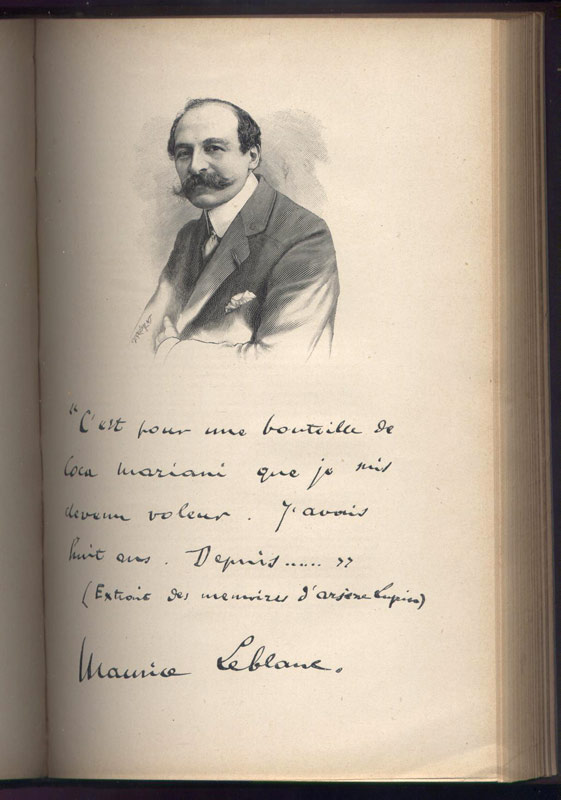 "C'est pour une bouteille de
Coca Mariani que je suis
devenu voleur. J'avais
huit ans. Depuis..... "
(Extrait des memoires d'arsène Lupin)
Maurice Leblanc.